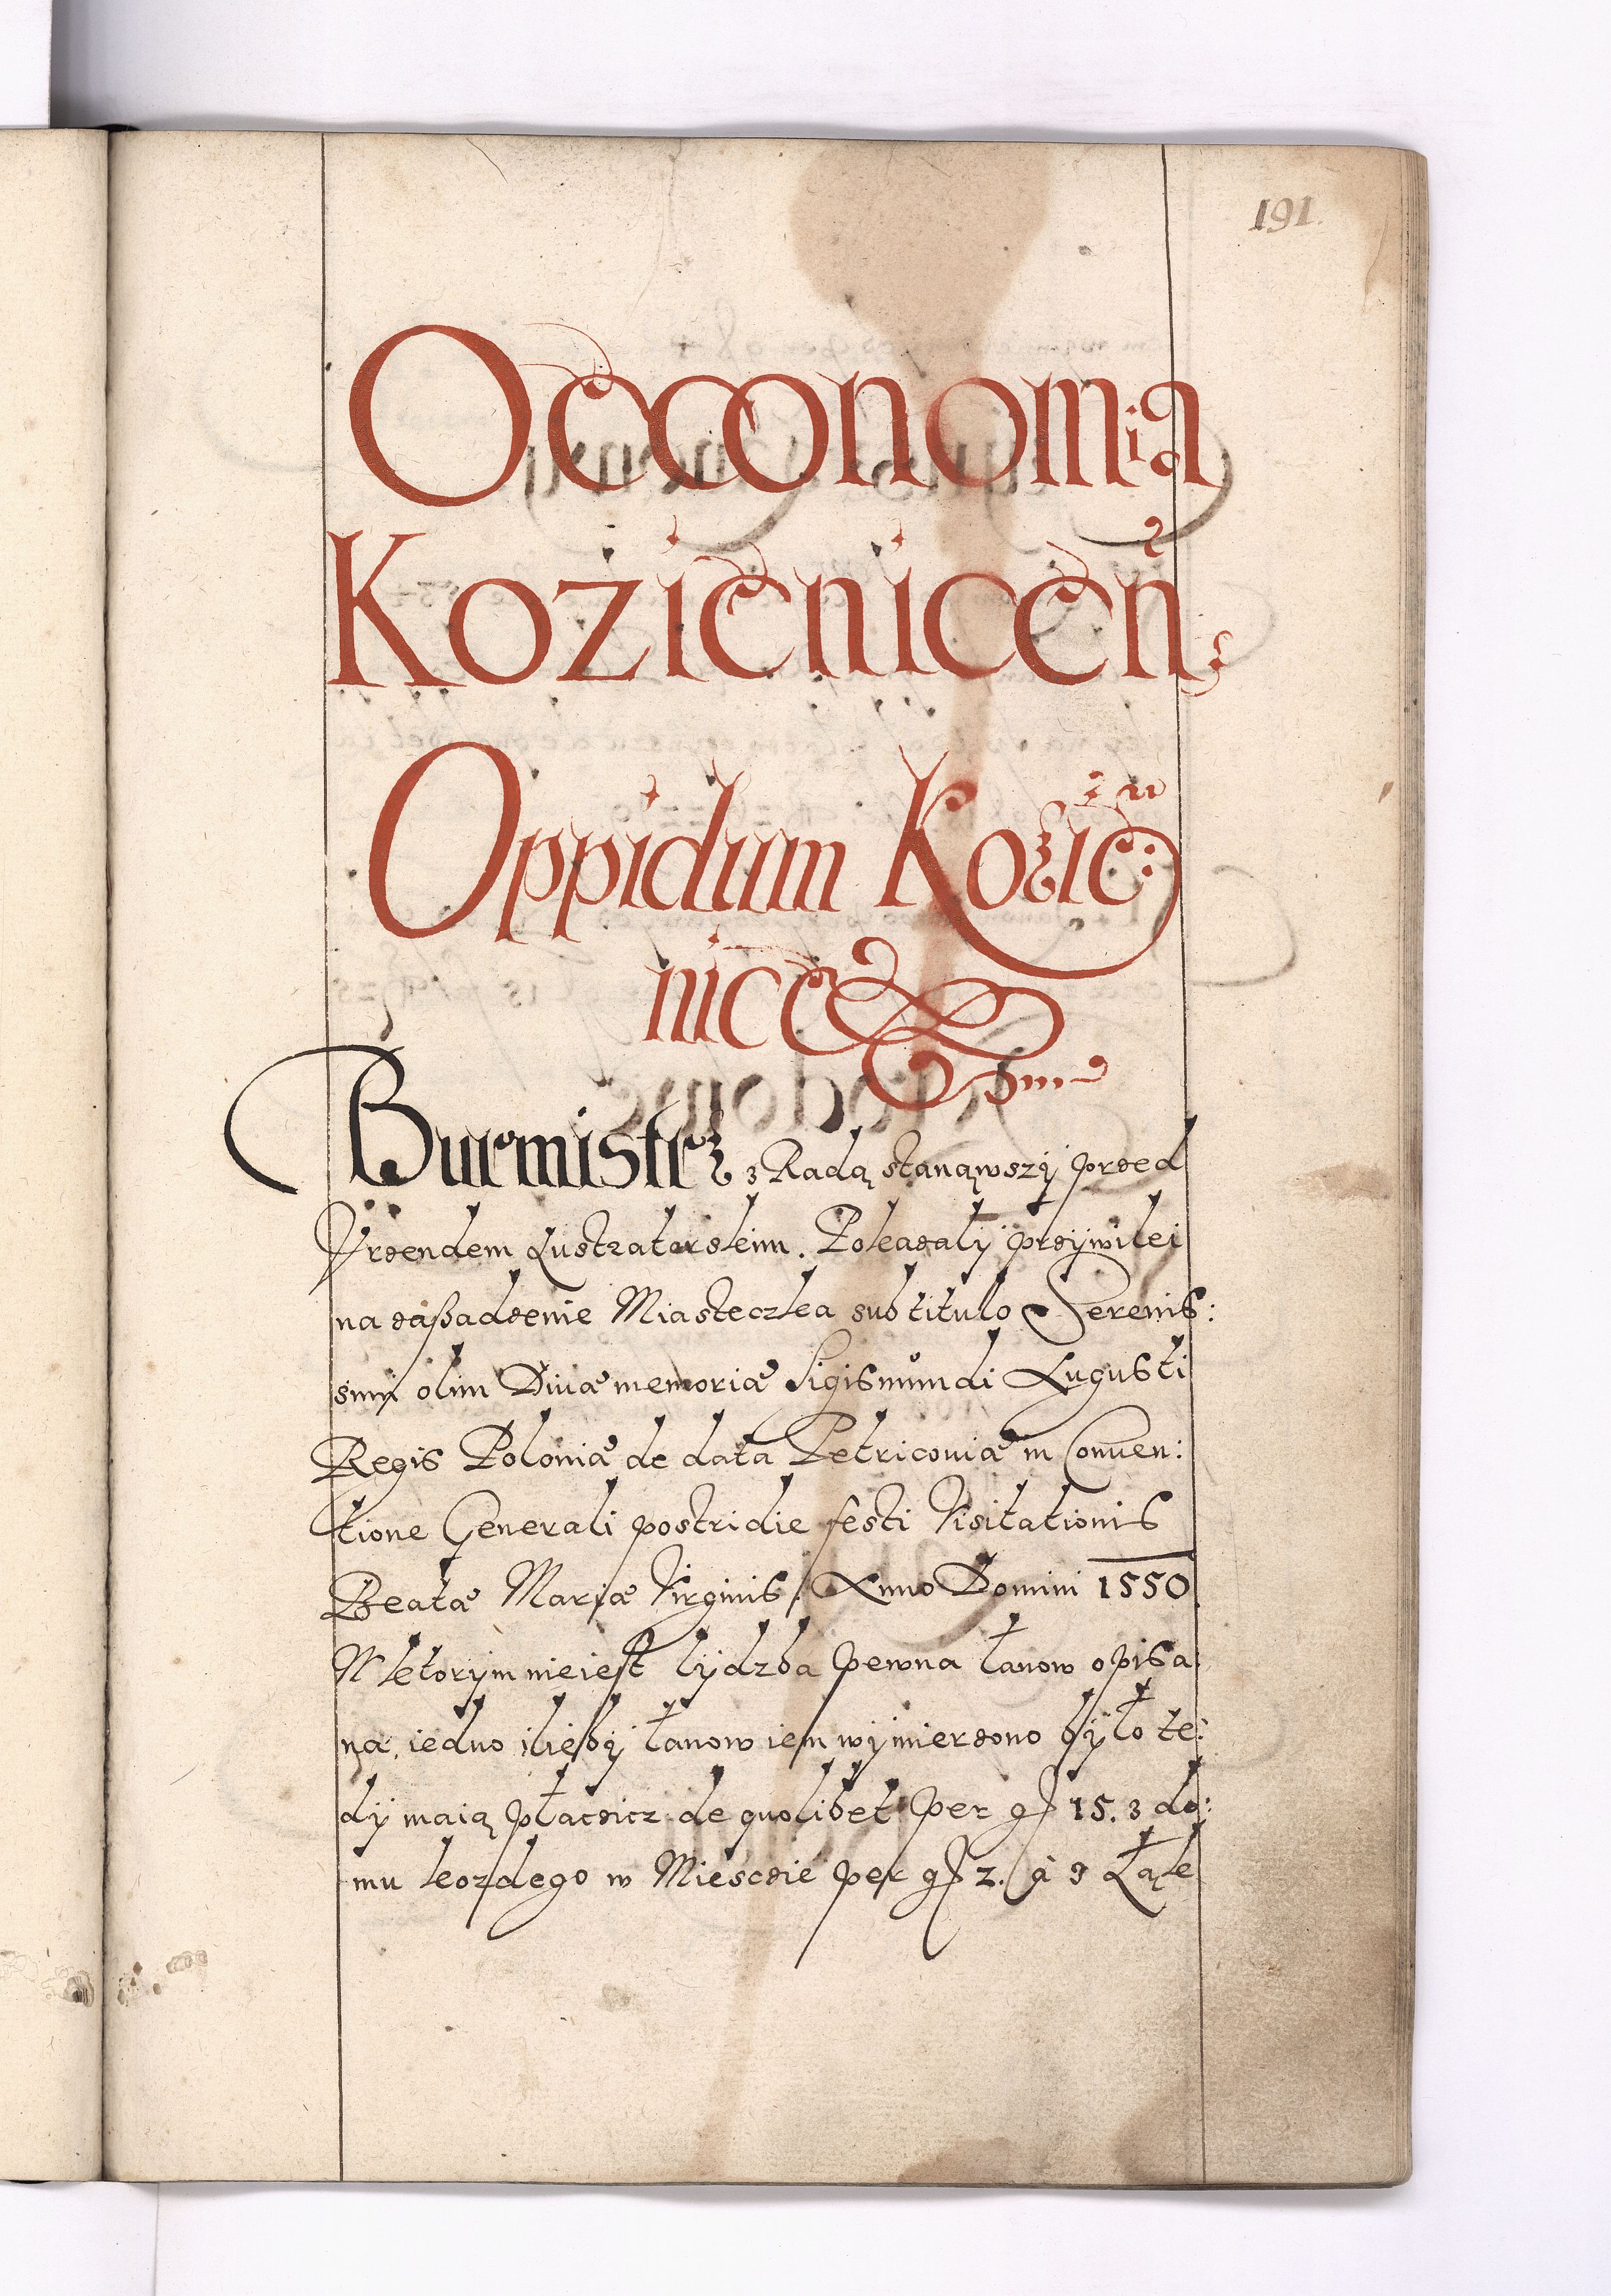 191.
Oeconomia
Kozieniceñ:
Oppidum Kozie:
nice
Burmistrz z Radą stanąwszÿ przed
Vrzendem Lustratorskim. Pokazalÿ przÿwilei
na zaßadzenie Miasteczka sub titulo Serenis:
simi olim Diuæ memoriæ Sigismůmdi Augusti
Regis Poloniæ de data Petricouiæ in Conuen:
tione Generali postridie festi Visitationis
Beatæ Mariæ Virginis. Anno Domini 1550
W ktorÿm nieiest lÿdzba pewna łanow opisa:
na, iedno iliebÿ łanow iem wÿmierzono bÿło te:
dÿ maią płaczicz de quolibet per gſ 15. z do:
mu kozdego w Miesczie per gſ 2. à z Łąk